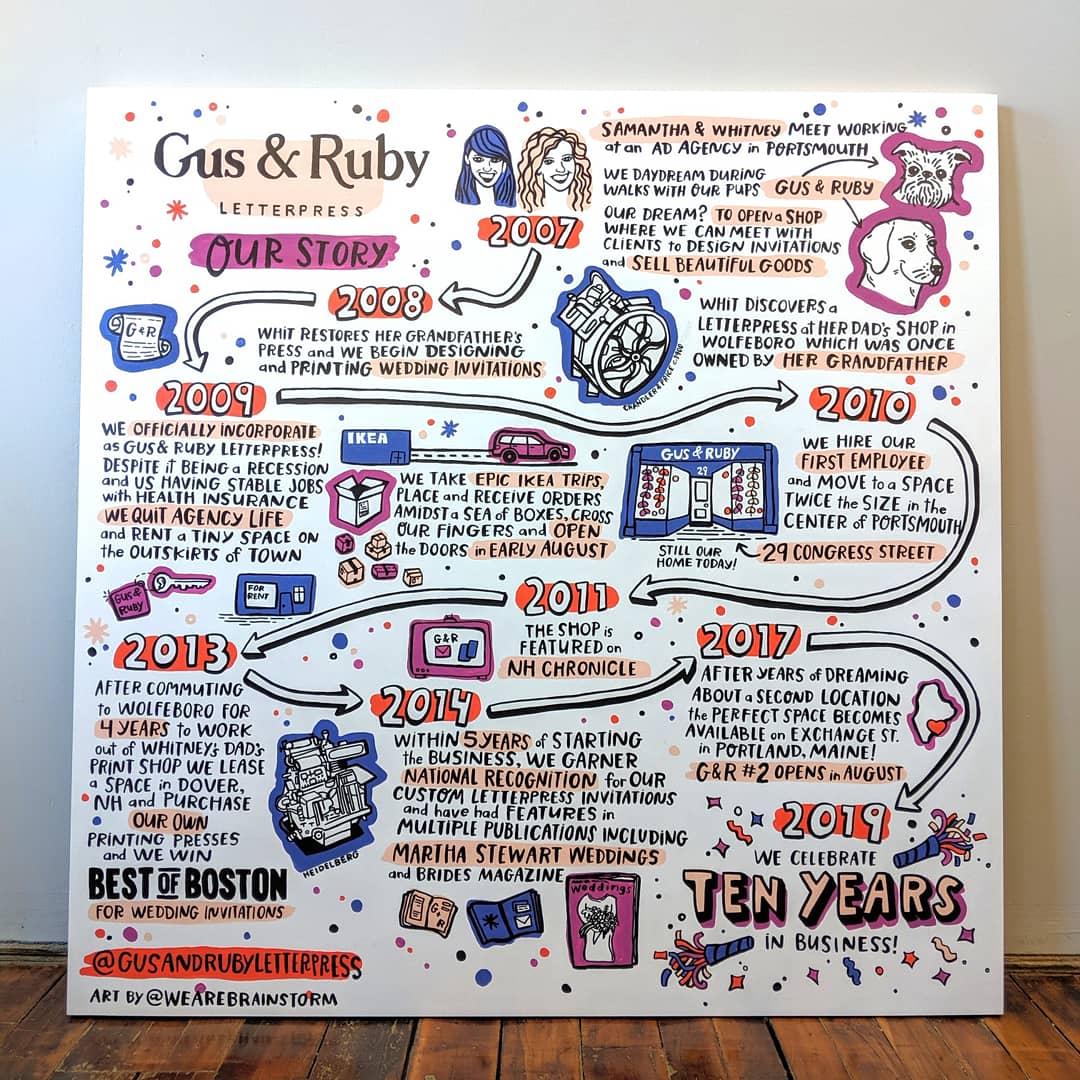 Gus & Ruby
LETTERPRESS
OUR STORY
2007
SAMANTHA & WHITNEY MEET WORKING
at an AD AGENCY in PORTSMOUTH
WE DAYDREAM DURING
WALKS WITH OUR PUPS GUS & RUBY
OUR DREAM? TO OPEN a SHOP
WHERE WE CAN MEET WITH
CLIENTS to DESIGN INVITATIONS
and SELL BEAUTIFUL GOODS
2008
G&R
WHIT RESTORES HER GRANDFATHER'S
PRESS and WE BEGIN DESIGNING
and PRINTING WEDDING INVITATIONS
CHANDLER & PRICE c.1900
WHIT DISCOVERS a
LETTERPRESS at HER DAD'S SHOP in
WOLFEBORO WHICH WAS ONCE
OWNED BY HER GRANDFATHER
2009
WE OFFICIALLY INCORPORATE
as GUS & RUBY LETTERPRESS!
DESPITE it BEING a RECESSION
and US HAVING STABLE JOBS
with HEALTH INSURANCE
WE QUIT AGENCY LIFE
and RENT a TINY SPACE ON
the OUTSKIRTS of TOWN
GUS &
RUBY
FOR
RENT
IKEA
WE TAKE EPIC IKEA TRIPS,
PLACE and RECEIVE ORDERS
AMIDST a SEA of BOXES, CROSS
OUR FINGERS and OPEN
the DOORS in EARLY AUGUST
2010
WE HIRE OUR
FIRST EMPLOYEE
and MOVE to a SPACE
TWICE the SIZE in the
CENTER of PORTSMOUTH
GUS & RUBY
29
STILL OUR
HOME TODAY!
29 CONGRESS STREET
2011
G&R
THE SHOP is
FEATURED on
NH CHRONICLE
2013
AFTER COMMUTING
to WOLFEBORO FOR
4 YEARS to WORK
out of WHITNEY'S DAD'S
PRINT SHOP WE LEASE
a SPACE in DOVER,
NH and PURCHASE
OUR OWN
PRINTING PRESSES
and WE WIN
BEST OF BOSTON
FOR WEDDING INVITATIONS
HEIDELBERG
2014
WITHIN 5 YEARS of STARTING
the BUSINESS, WE GARNER
NATIONAL RECOGNITION for OUR
CUSTOM LETTERPRESS INVITATIONS
and have had FEATURES in
MULTIPLE PUBLICATIONS INCLUDING
MARTHA STEWART WEDDINGS
and BRIDES MAGAZINE
G&R
Weddings
2017
AFTER YEARS of DREAMING
ABOUT a SECOND LOCATION
the PERFECT SPACE BECOMES
AVAILABLE on EXCHANGE ST.
in PORTLAND, MAINE!
G&R #2 OPENS in AUGUST
2019
WE CELEBRATE
TEN YEARS
IN BUSINESS!
@GUSANDRUBYLETTERPRESS
ART BY @WEAREBRAINSTORM